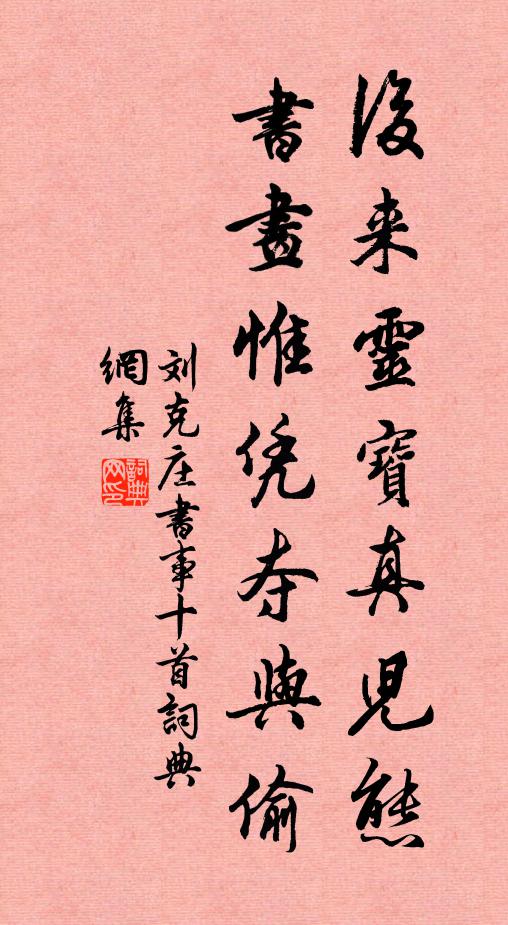 後来靈寶真児態
書畫惟凭夺與偷
刘克庄書事十首詞典
網集
詞典網印